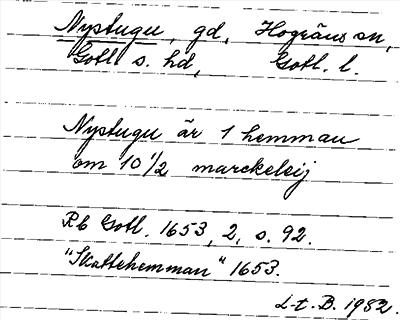 Nystugu, gd, Hogräns sn,
Gotl. s. hd, Gotl. l.
Nystugu är 1 hemman
om 10 1/2 marckeleij
Rb Gotl. 1653, 2, s. 92.
"Skattehemman" 1653.
L-t. B. 1982.